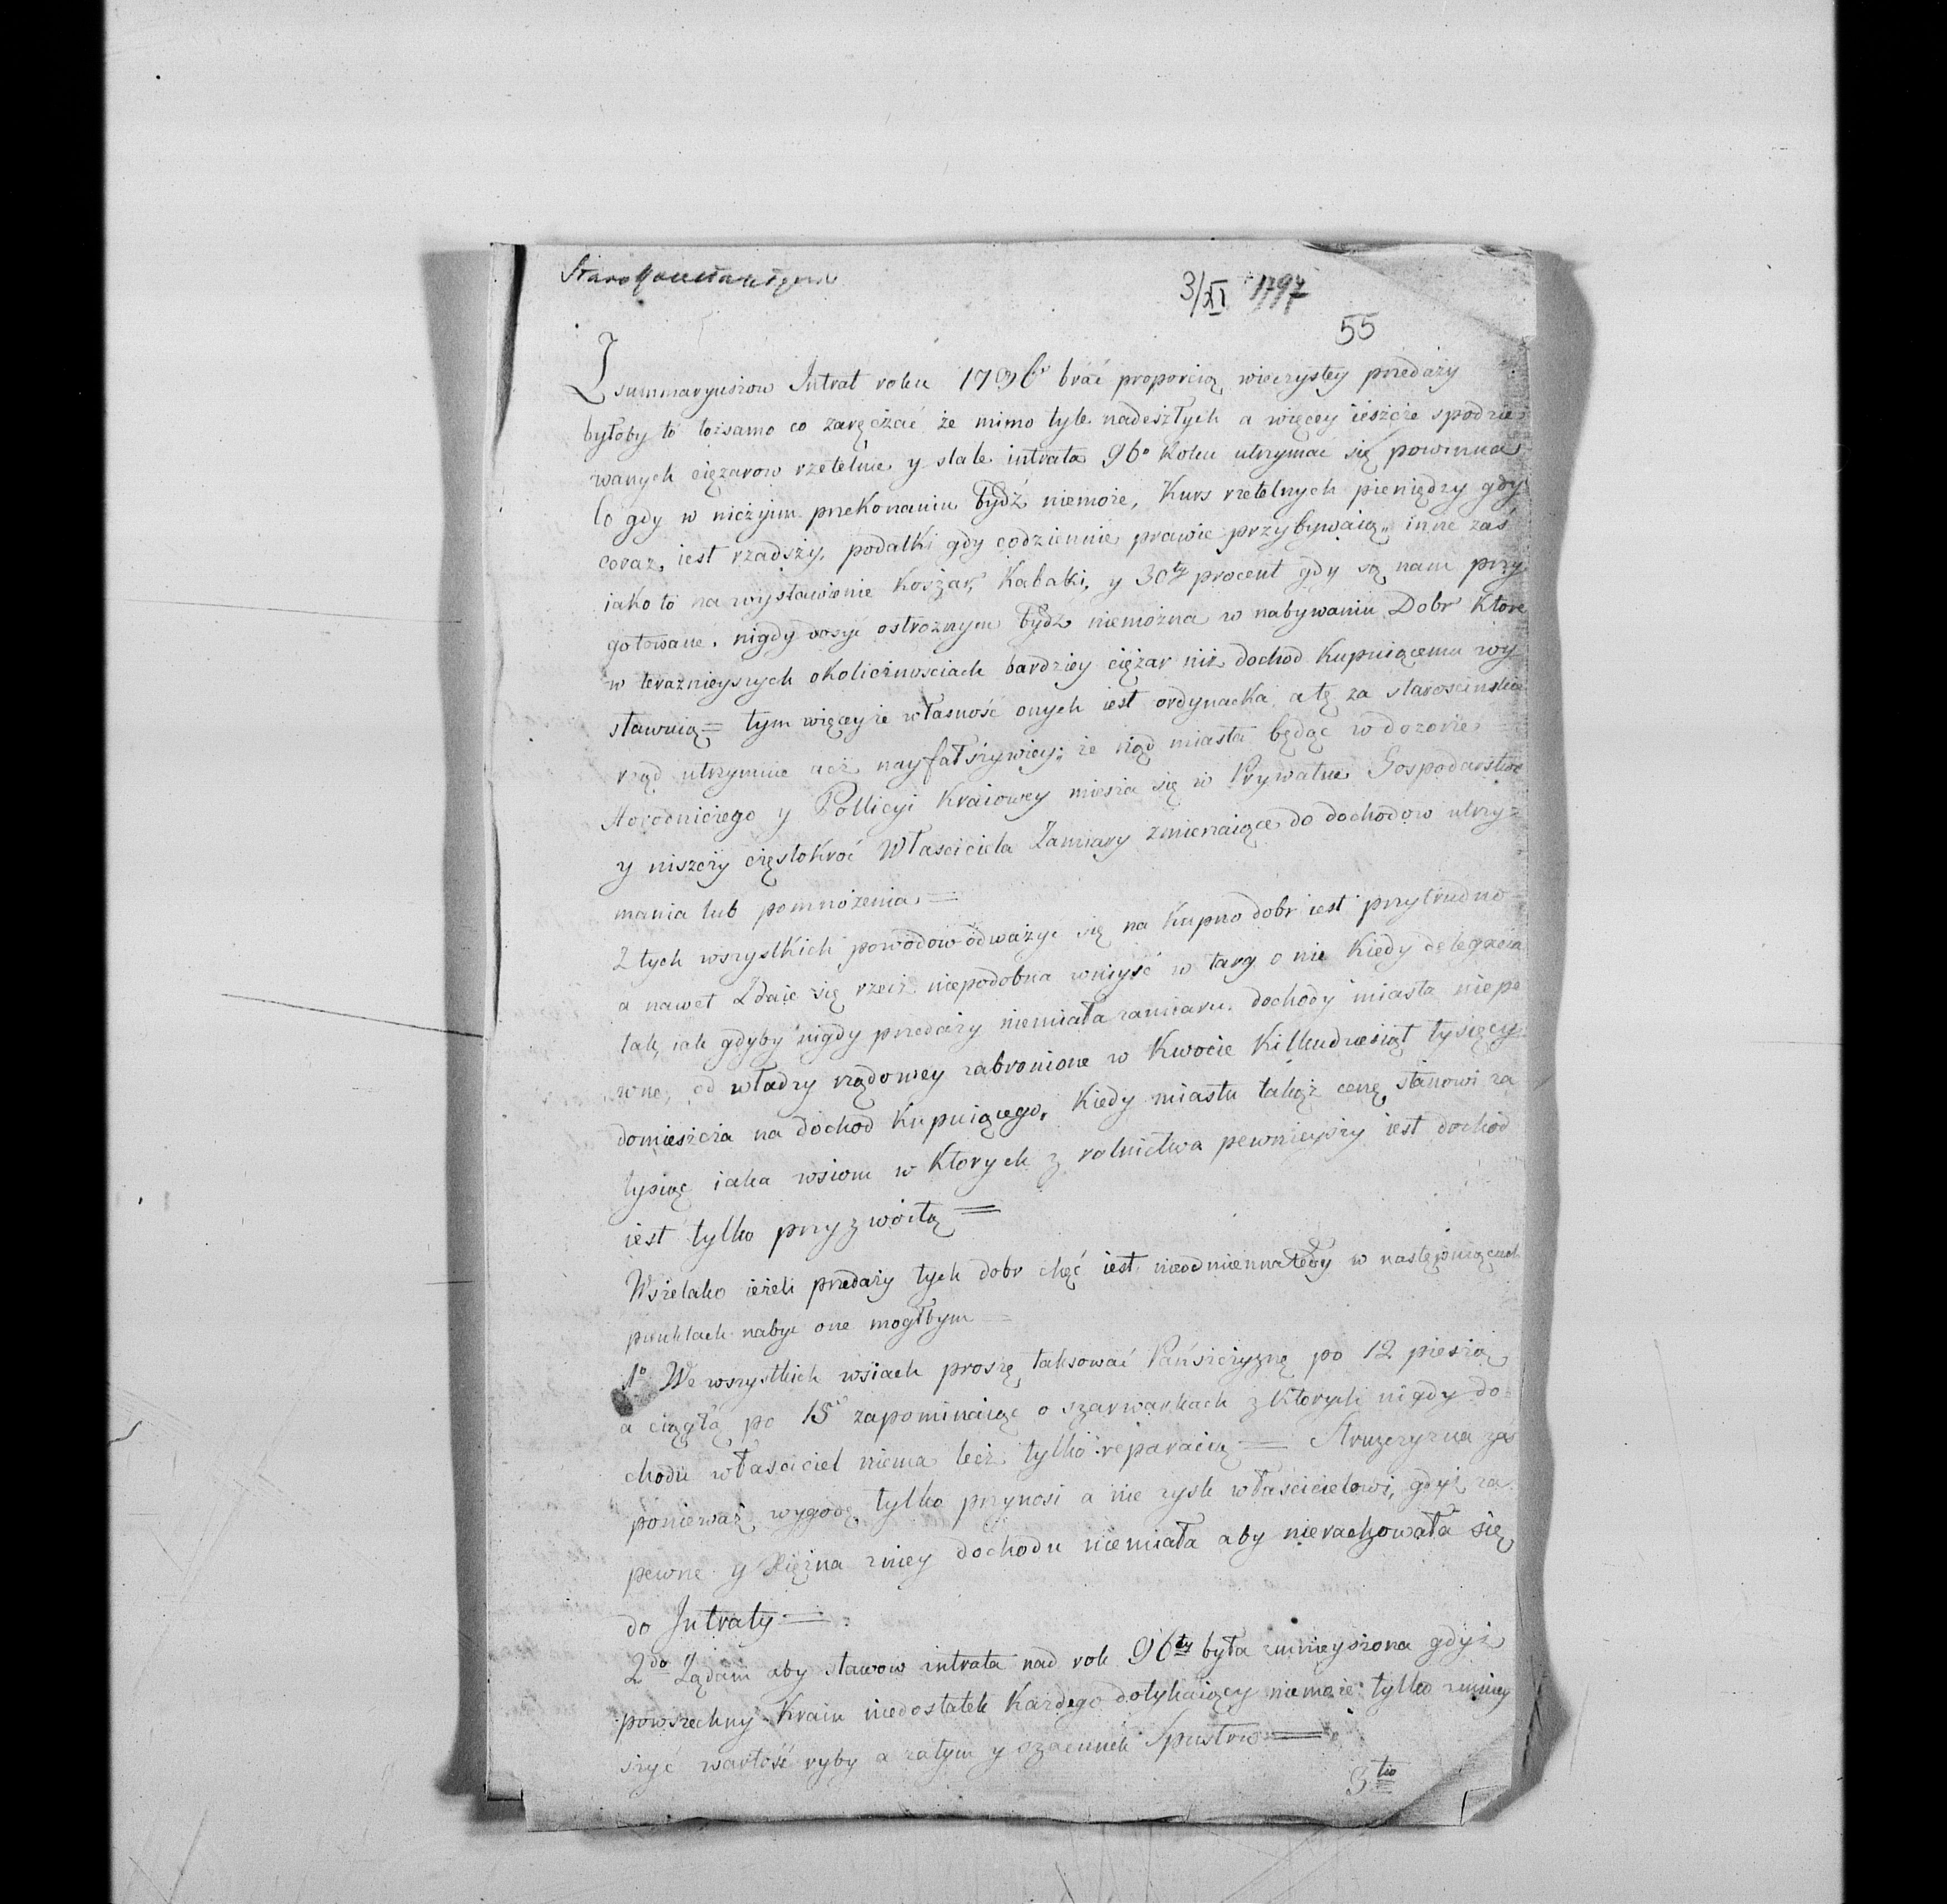 Starokonstantynow
3/XI 1797
55
Z summaryuszow Intrat roku 1796º brać proporcią wieczystey przedaży
byłoby to tożsamo co zaręczać że mimo tyle nadeszłych a więcey ieszcze spodzie
wanych ciężarow rzetelnie y stale intrata 96º Roku utrzymać się powinna
co gdy w niczyim przekonaniu bydź niemoże, Kurs rzetelnych pieniędzy gdy
coraz iest rzadszy, podatki gdy codziennie prawie przybywaią, inne zaś
iako to na wystawienie Koszar, Kabaki, y 30ty procent gdy są nam przy
gotowane, nigdy dosyć ostrożnym bydz niemożna w nabywaniu Dobr Ktore
w teraznieyszych okolicznosciach bardziey ciężar niż dochod Kupuiącemu wy
stawuią = tym więcey że własność onych iest ordynacka, a tę za starościńską
rząd utrzymuie acz nayfałszywiey; że rząd miasta będąc w dozorze
Horodniczego y Pollicyi Kraiowey miesza się w Prywatne Gospodarstwo
y niszczy częstokroć Własciciela Zamiary zmierzaiące do dochodow utrzy=
mania lub pomnożenia =
Z tych wszystkich powodow odważyć się na Kupno dobr iest przytrudno
a nawet Zdaie się rzecz niepodobna wniyść w targ o nie Kiedy delegacia
tak, iak gdyby nigdy przedaży niemiała zamiaru, dochody miasta niepe
wne, od władzy rządowey zabronione w Kwocie Kilkudziesiąt tysięcy
domieszcza na dochod Kupuiącego, Kiedy miastu takąż cenę stanowi za
tysiąc iaka wsiom w Ktorych z rolnictwa pewnieyszy iest dochod
iest tylko przyzwoitą =
Wszelako ieżeli przedaży tych dobr chęć iest nieodmienna tedy w następuiących
punktach nabyć one mogłbym =
1º We wszystkich wsiach proszę taksować Pańszczyznę po 12 pieszą
a ciągłą po 15 zapominaiąc o szarwarkach z Ktorych nigdy do=
chodu własciciel niema lecz tylko reparacią = Struzczyzna zaś
ponieważ wygodę tylko przynosi a nie zysk właścicielowi, gdyż za
pewne y Xiężna zniey dochodu niemiała aby nierachowała się
do Intraty =
2do Żądam aby stawow intrata nad rok 96ty była zmnieyszona gdyż
powszechny Kraiu niedostatek Kazdego dotykaiący niemoże tylko zmniey
szyć wartość ryby a zatym y szacunek Spustow =
3tio